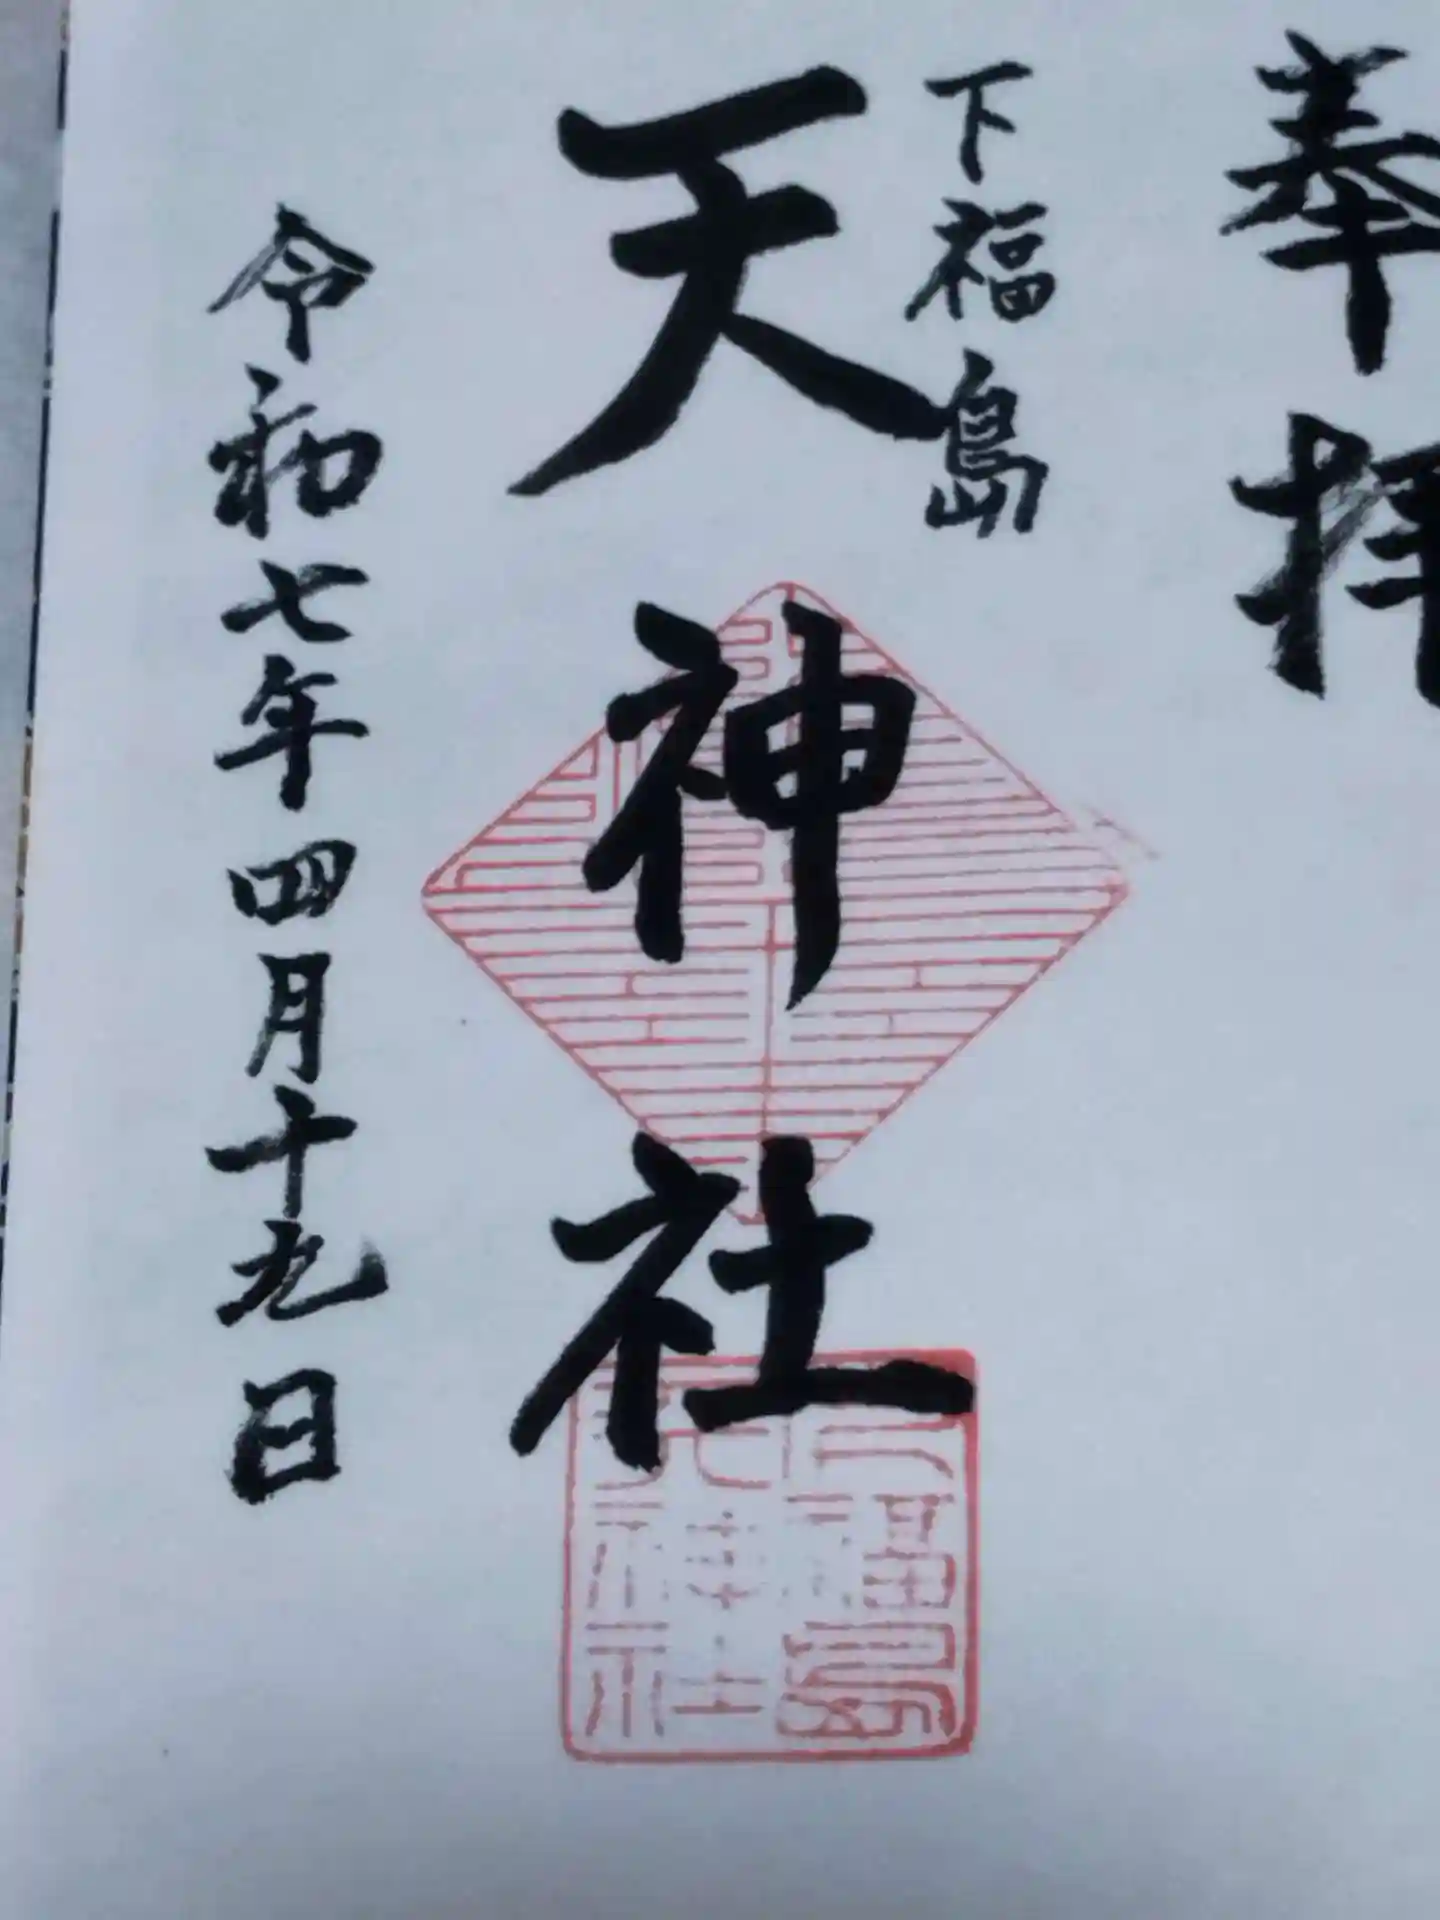 奉拝
下福島
天神社
令和七年四月十九日
下福島
天神社